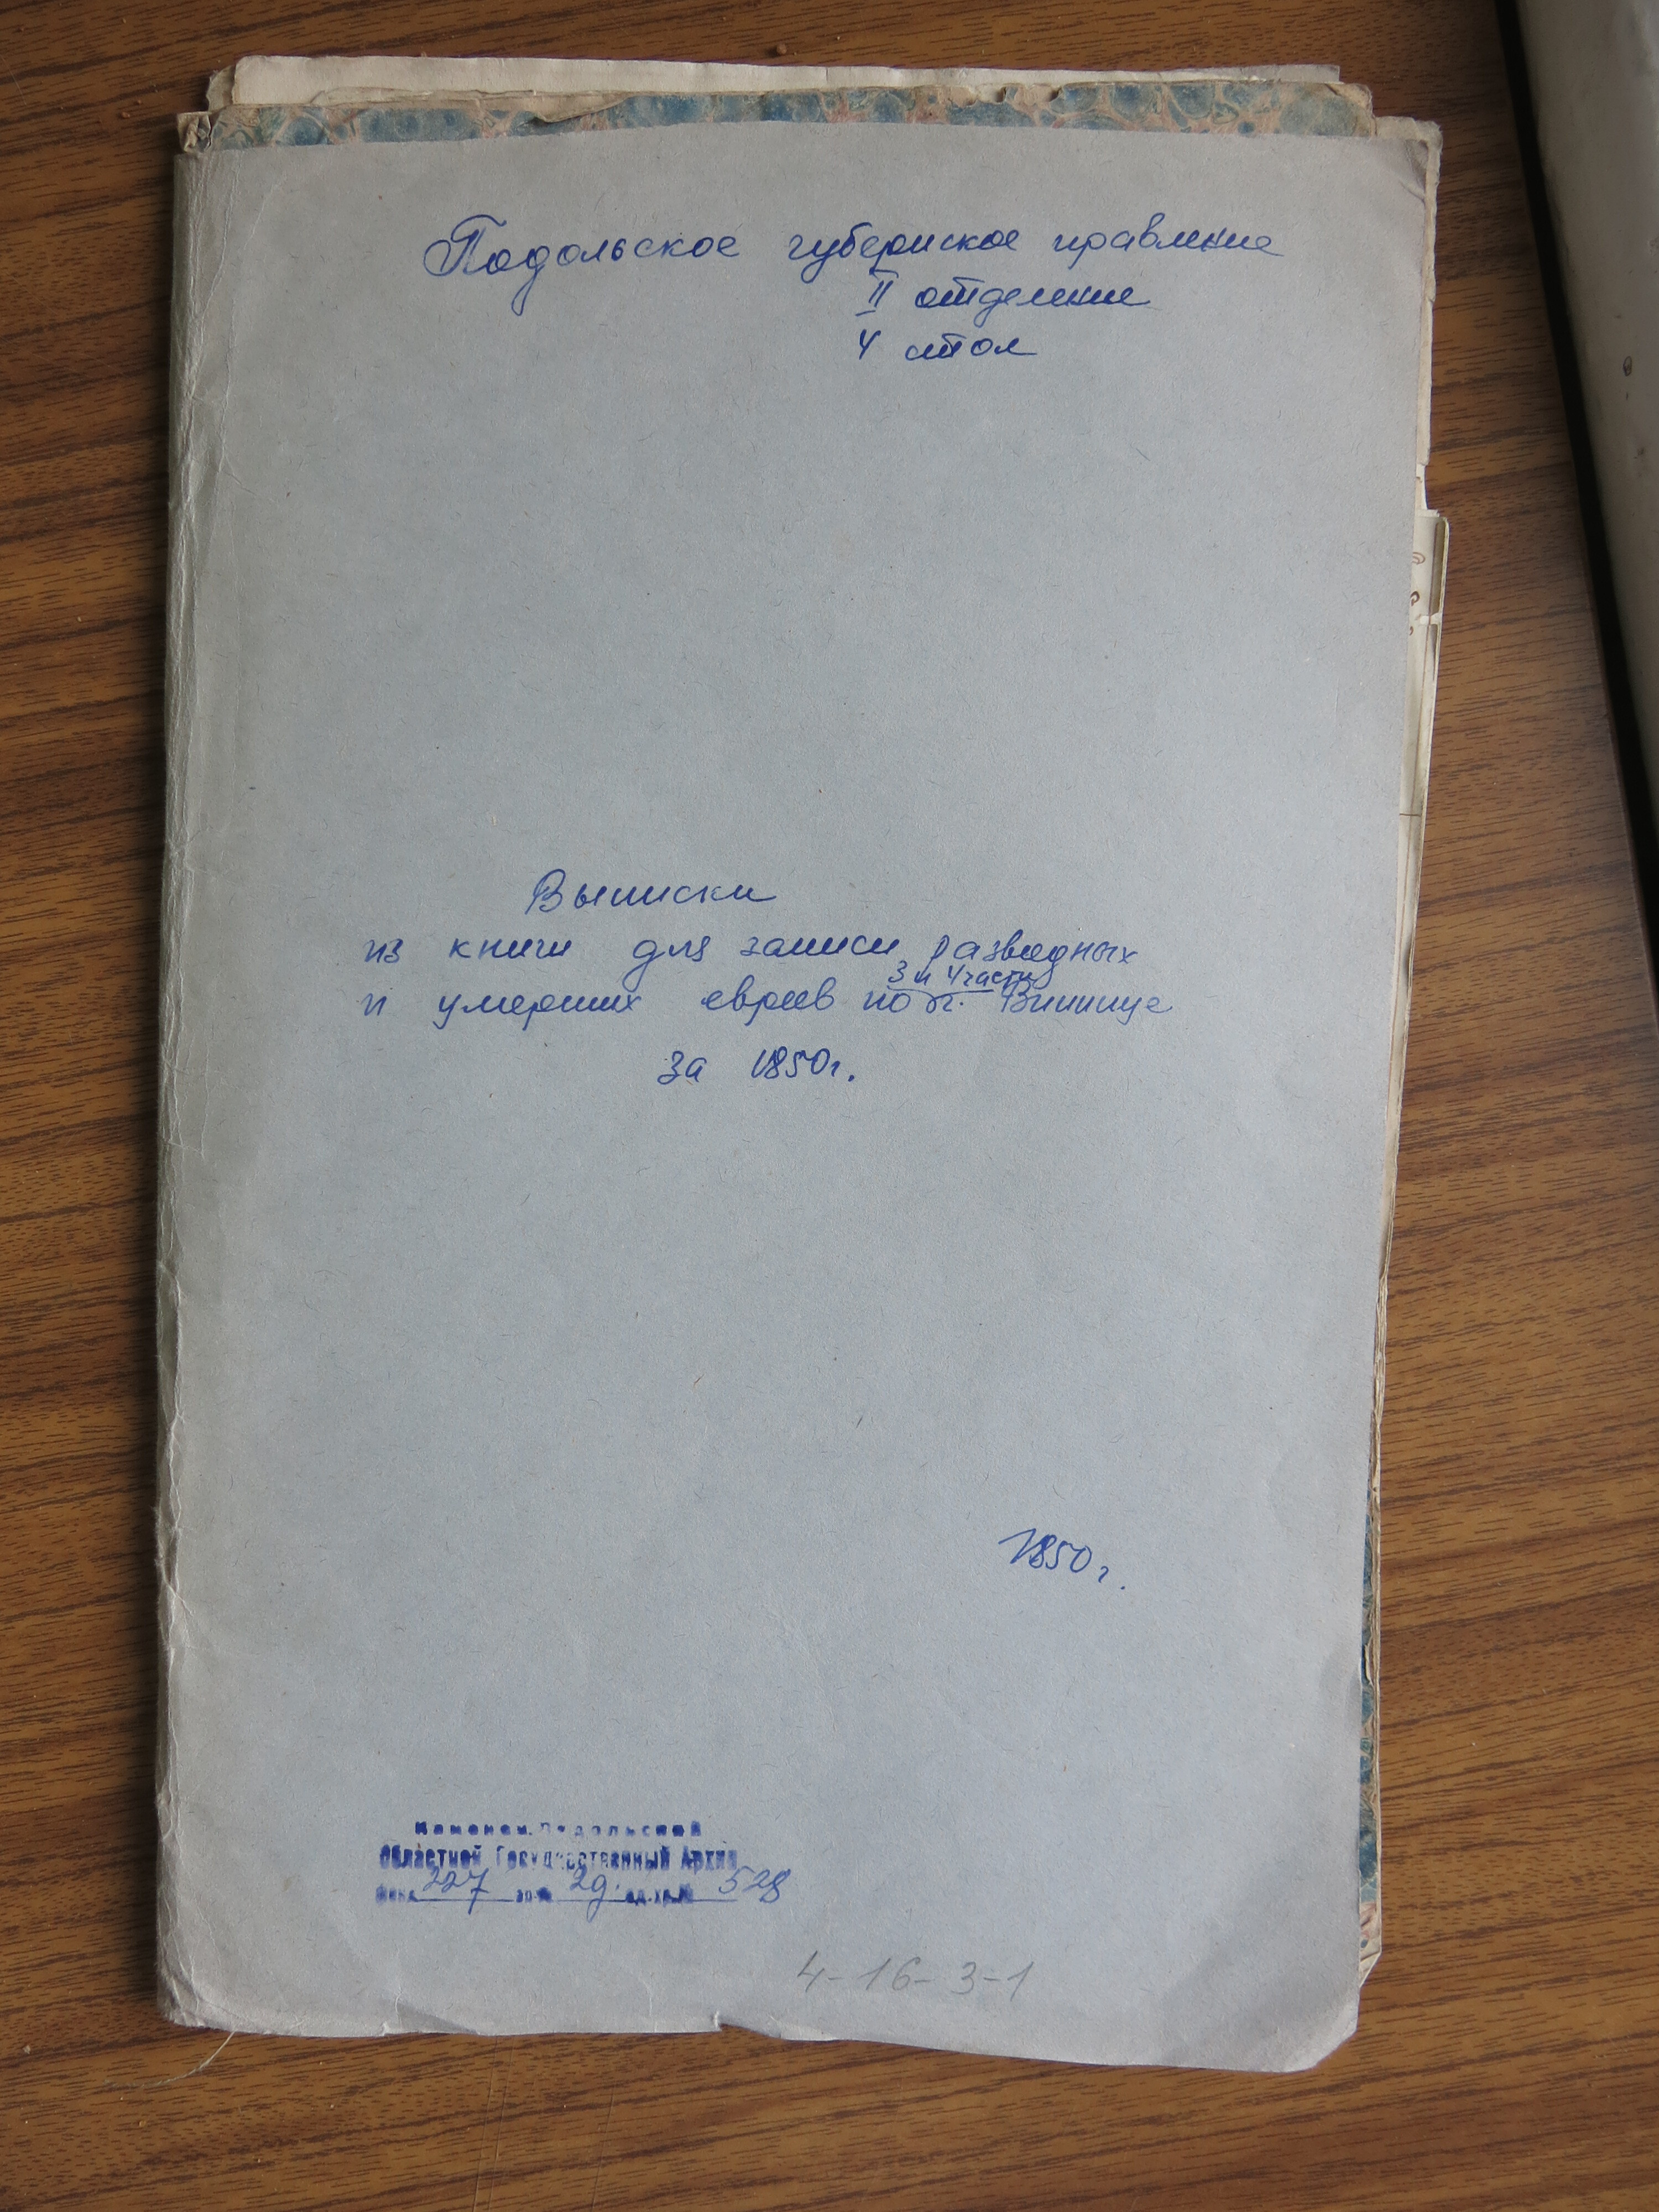 Подольское губернское правление
II отделение
4 стол
Выписки
из книги для записи разводных
3 и 4 части
и умерших евреев по г. Виннице
за 1850г.
1850г.
Каменец-Подольский
Областной Государственный Архив
фонд 227 оп. 29. ед.хр.№ 528
4-16-3-1